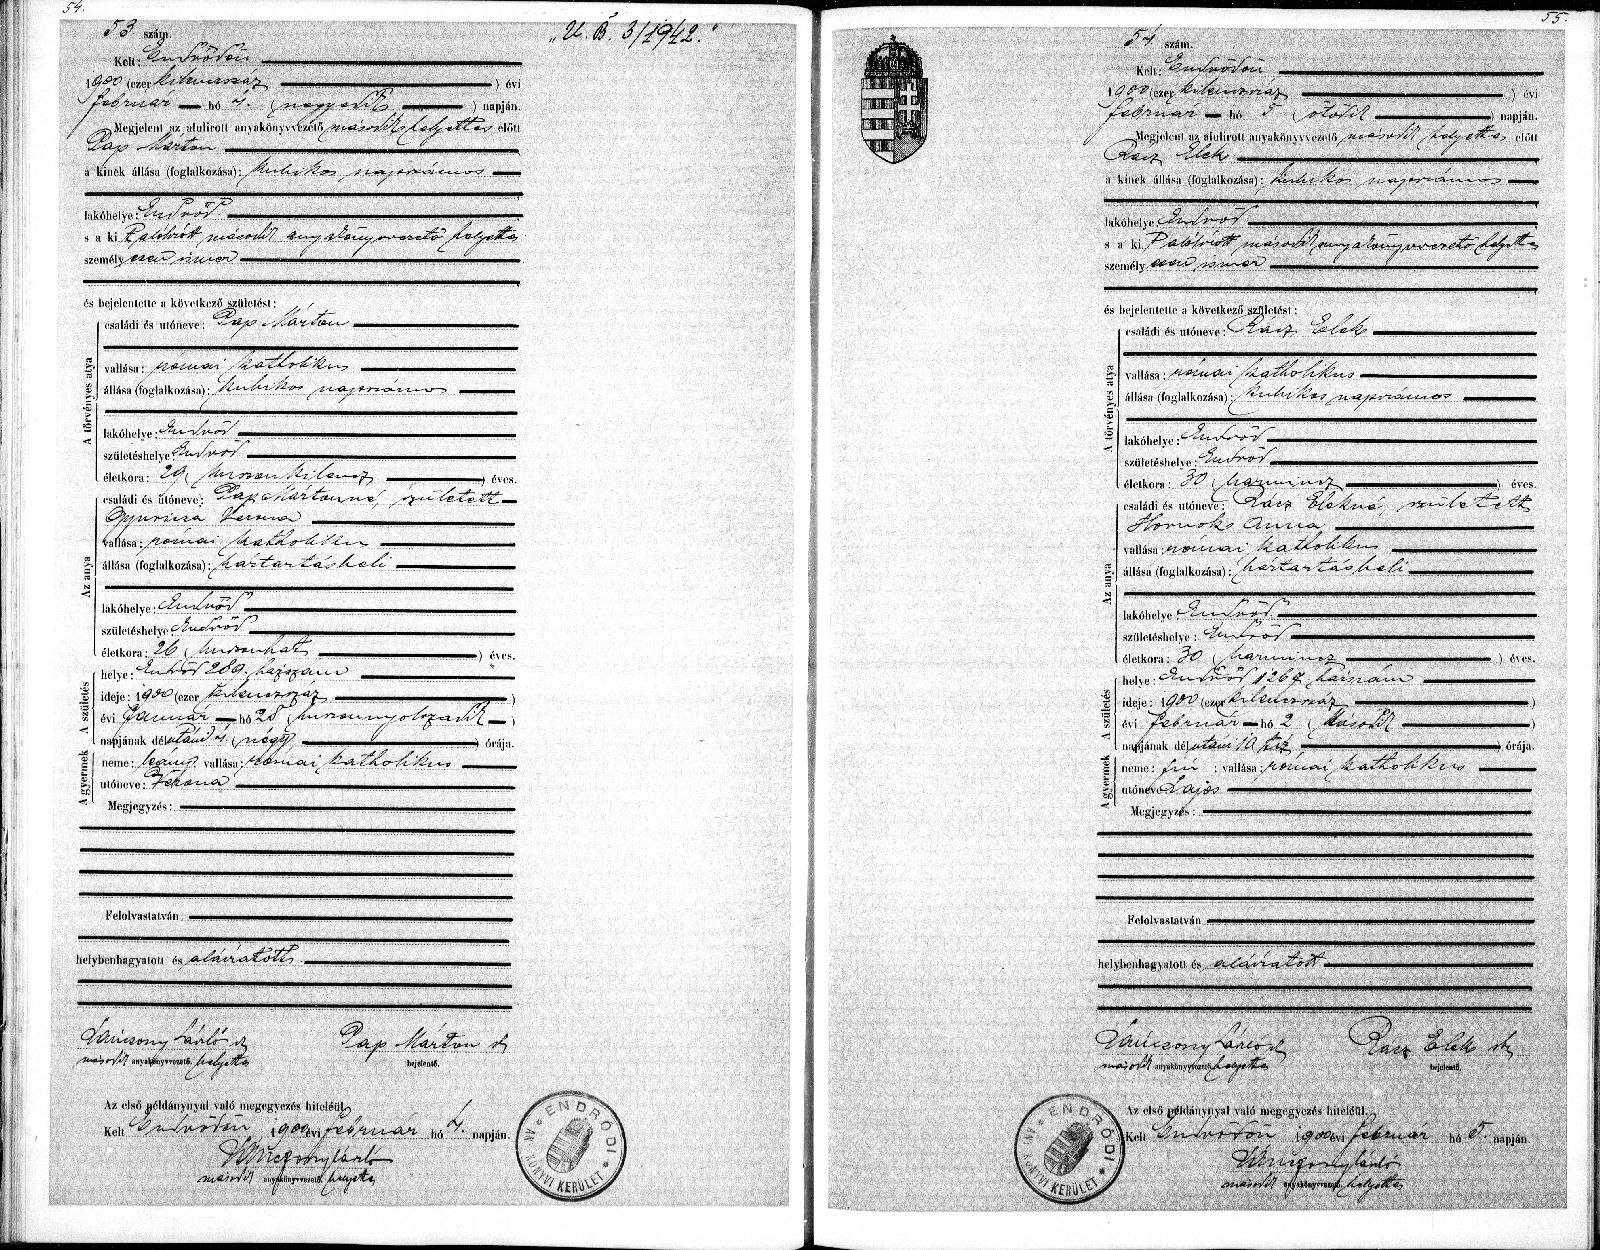 54.
53. szám.
„U. B. 3/1942."
Kelt: Endrődön
1900 (ezer kilenczszáz ) évi
február hó 4. (negyedik ) napján.
Megjelent az alulirott anyakönyvvezető második helyettes előtt
Pap Márton
a kinek állása (foglalkozása): kubikos napszámos
lakóhelye: Endrőd
s a ki t alólirott második anyakönyvvezető helyettes
személyesen ismer
és bejelentette a következő születést:
A törvényes atya
családi és utóneve: Pap Márton
vallása: római katholikus
állása (foglalkozása): kubikos napszámos
lakóhelye: Endrőd
születéshelye: Endrőd
életkora: 29 (huszonkilencz ) éves.
Az anya
családi és utóneve: Pap Mártonné, született
Gyuricza Verona
vallása: római katholikus
állása (foglalkozása): háztartásbeli
lakóhelye: Endrőd
születéshelye: Endrőd
életkora: 26 (huszonhat ) éves.
A születés
helye: Endrőd 289. házszám
ideje: 1900 (ezer kilenczszáz )
évi Január hó 28 (huszonnyolczadik )
napjának délutáni 4. (négy ) órája.
A gyermek
neme: leány vallása: római katholikus
utóneve: Verona
Megjegyzés:
Felolvastatván
helybenhagyatott és aláiratott
László Pap Márton
második anyakönyvvezető helyettes bejelentő.
Az első példánynyal való megegyezés hiteléül.
Kelt Endrődön 1900 évi február hó 4. napján.
László
második anyakönyvvezető helyettes
ENDRŐDI ANYAKÖNYVI KERÜLET
55.
54. szám.
Kelt: Endrődön
1900 (ezer kilenczszáz ) évi
február hó 5 (ötödik ) napján.
Megjelent az alulirott anyakönyvvezető második helyettes előtt
Rácz Elek
a kinek állása (foglalkozása): kubikos napszámos
lakóhelye: Endrőd
s a ki t alólirott második anyakönyvvezető helyettes
személyesen ismer
és bejelentette a következő születést:
A törvényes atya
családi és utóneve: Rácz Elek
vallása: római katholikus
állása (foglalkozása): kubikos napszámos
lakóhelye: Endrőd
születéshelye: Endrőd
életkora: 30 (harmincz ) éves.
Az anya
családi és utóneve: Rácz Elekné, született
Hornok Anna
vallása: római katholikus
állása (foglalkozása): háztartásbeli
lakóhelye: Endrőd
születéshelye: Endrőd
életkora: 30 (harmincz ) éves.
A születés
helye: Endrőd házszám
ideje: 1900 (ezer kilenczszáz )
évi február hó 2 (második )
napjának délutáni 10 tiz ) órája.
A gyermek
neme: fiú : vallása: római katholikus
utóneve Lajos
Megjegyzés:
Felolvastatván
helybenhagyatott és aláiratott
László Rácz Elek
második anyakönyvvezető helyettes bejelentő.
Az első példánynyal való megegyezés hiteléül.
Kelt Endrődön 1900 évi február hó 5. napján.
László
második anyakönyvvezető helyettes
ENDRŐDI ANYAKÖNYVI KERÜLET